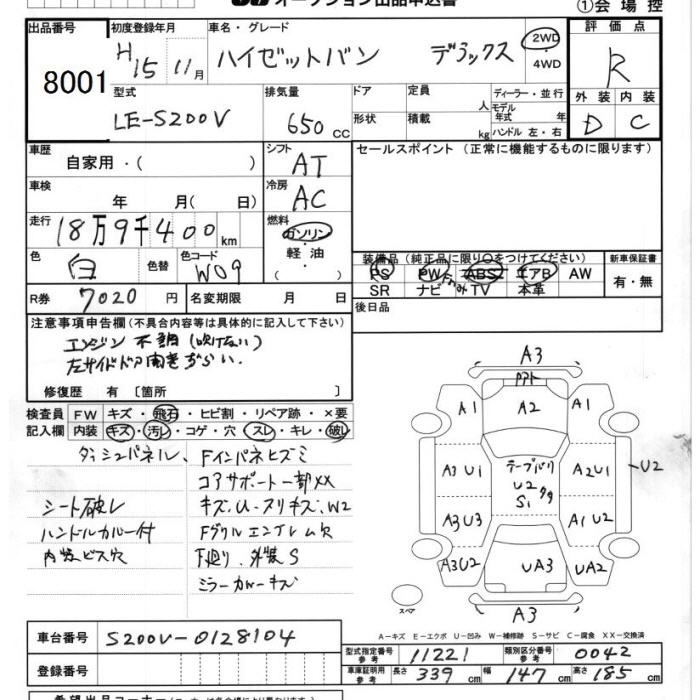 オークション出品申込書 ①会場控
出品番号 初度登録年月 車名・グレード 評価点
8001 H15 11月 ハイゼットバン デラックス 2WD・4WD R
型式 排気量 ドア 定員 ディーラー・並行 外装 内装
LE-S200V 650cc 形状 人 積載 kg モデル年式 年 ハンドル 左・右 D C
車歴 シフト セールスポイント (正常に機能するものに限ります)
自家用・( ) AT
車検 年 月( 日) 冷房 AC
走行 18万9千400km 燃料 ガソリン・軽油・( )
色 白 色替 色コード W09
装備品(純正品に限り○をつけてください) 新車保証書
PS PW ABS エアB AW 有・無
SR ナビ TV 本革
R券 7020円 名変期限 月 日 後日品
注意事項申告欄(不具合内容等は具体的に記入して下さい)
エンジン不調(吹けない)
左サイドドア開きづらい.
修復歴 有 [箇所 ]
検査員 FW キズ・飛石・ヒビ割・リペア跡・×要
記入欄 内装 キズ・汚レ・コゲ・穴・スレ・キレ・破レ
ダッシュパネル、Fインパネヒズミ
コアサポート一部XX
シート破レ キズ、U・スリキズ、W2
ハンドルカバー付 Fグリルエンブレム欠
内装ビス穴 下廻り、外装S
ミラーカバーキズ
A3
A1 A2 A1
A3 U1 テープハリ A2U1 U2
U2
S1
A3U3 A1 U2
A3U2 UA3 UA2
スペア A3
A-キズ E-エクボ U-凹み W-補修跡 S-サビ C-腐食 XX-交換済
車台番号 S200V-0128104
型式指定番号 参考 11221 類別区分番号 参考 0042
登録番号 車庫証明用 参考 長さ 339cm 幅 147cm 高さ 185cm